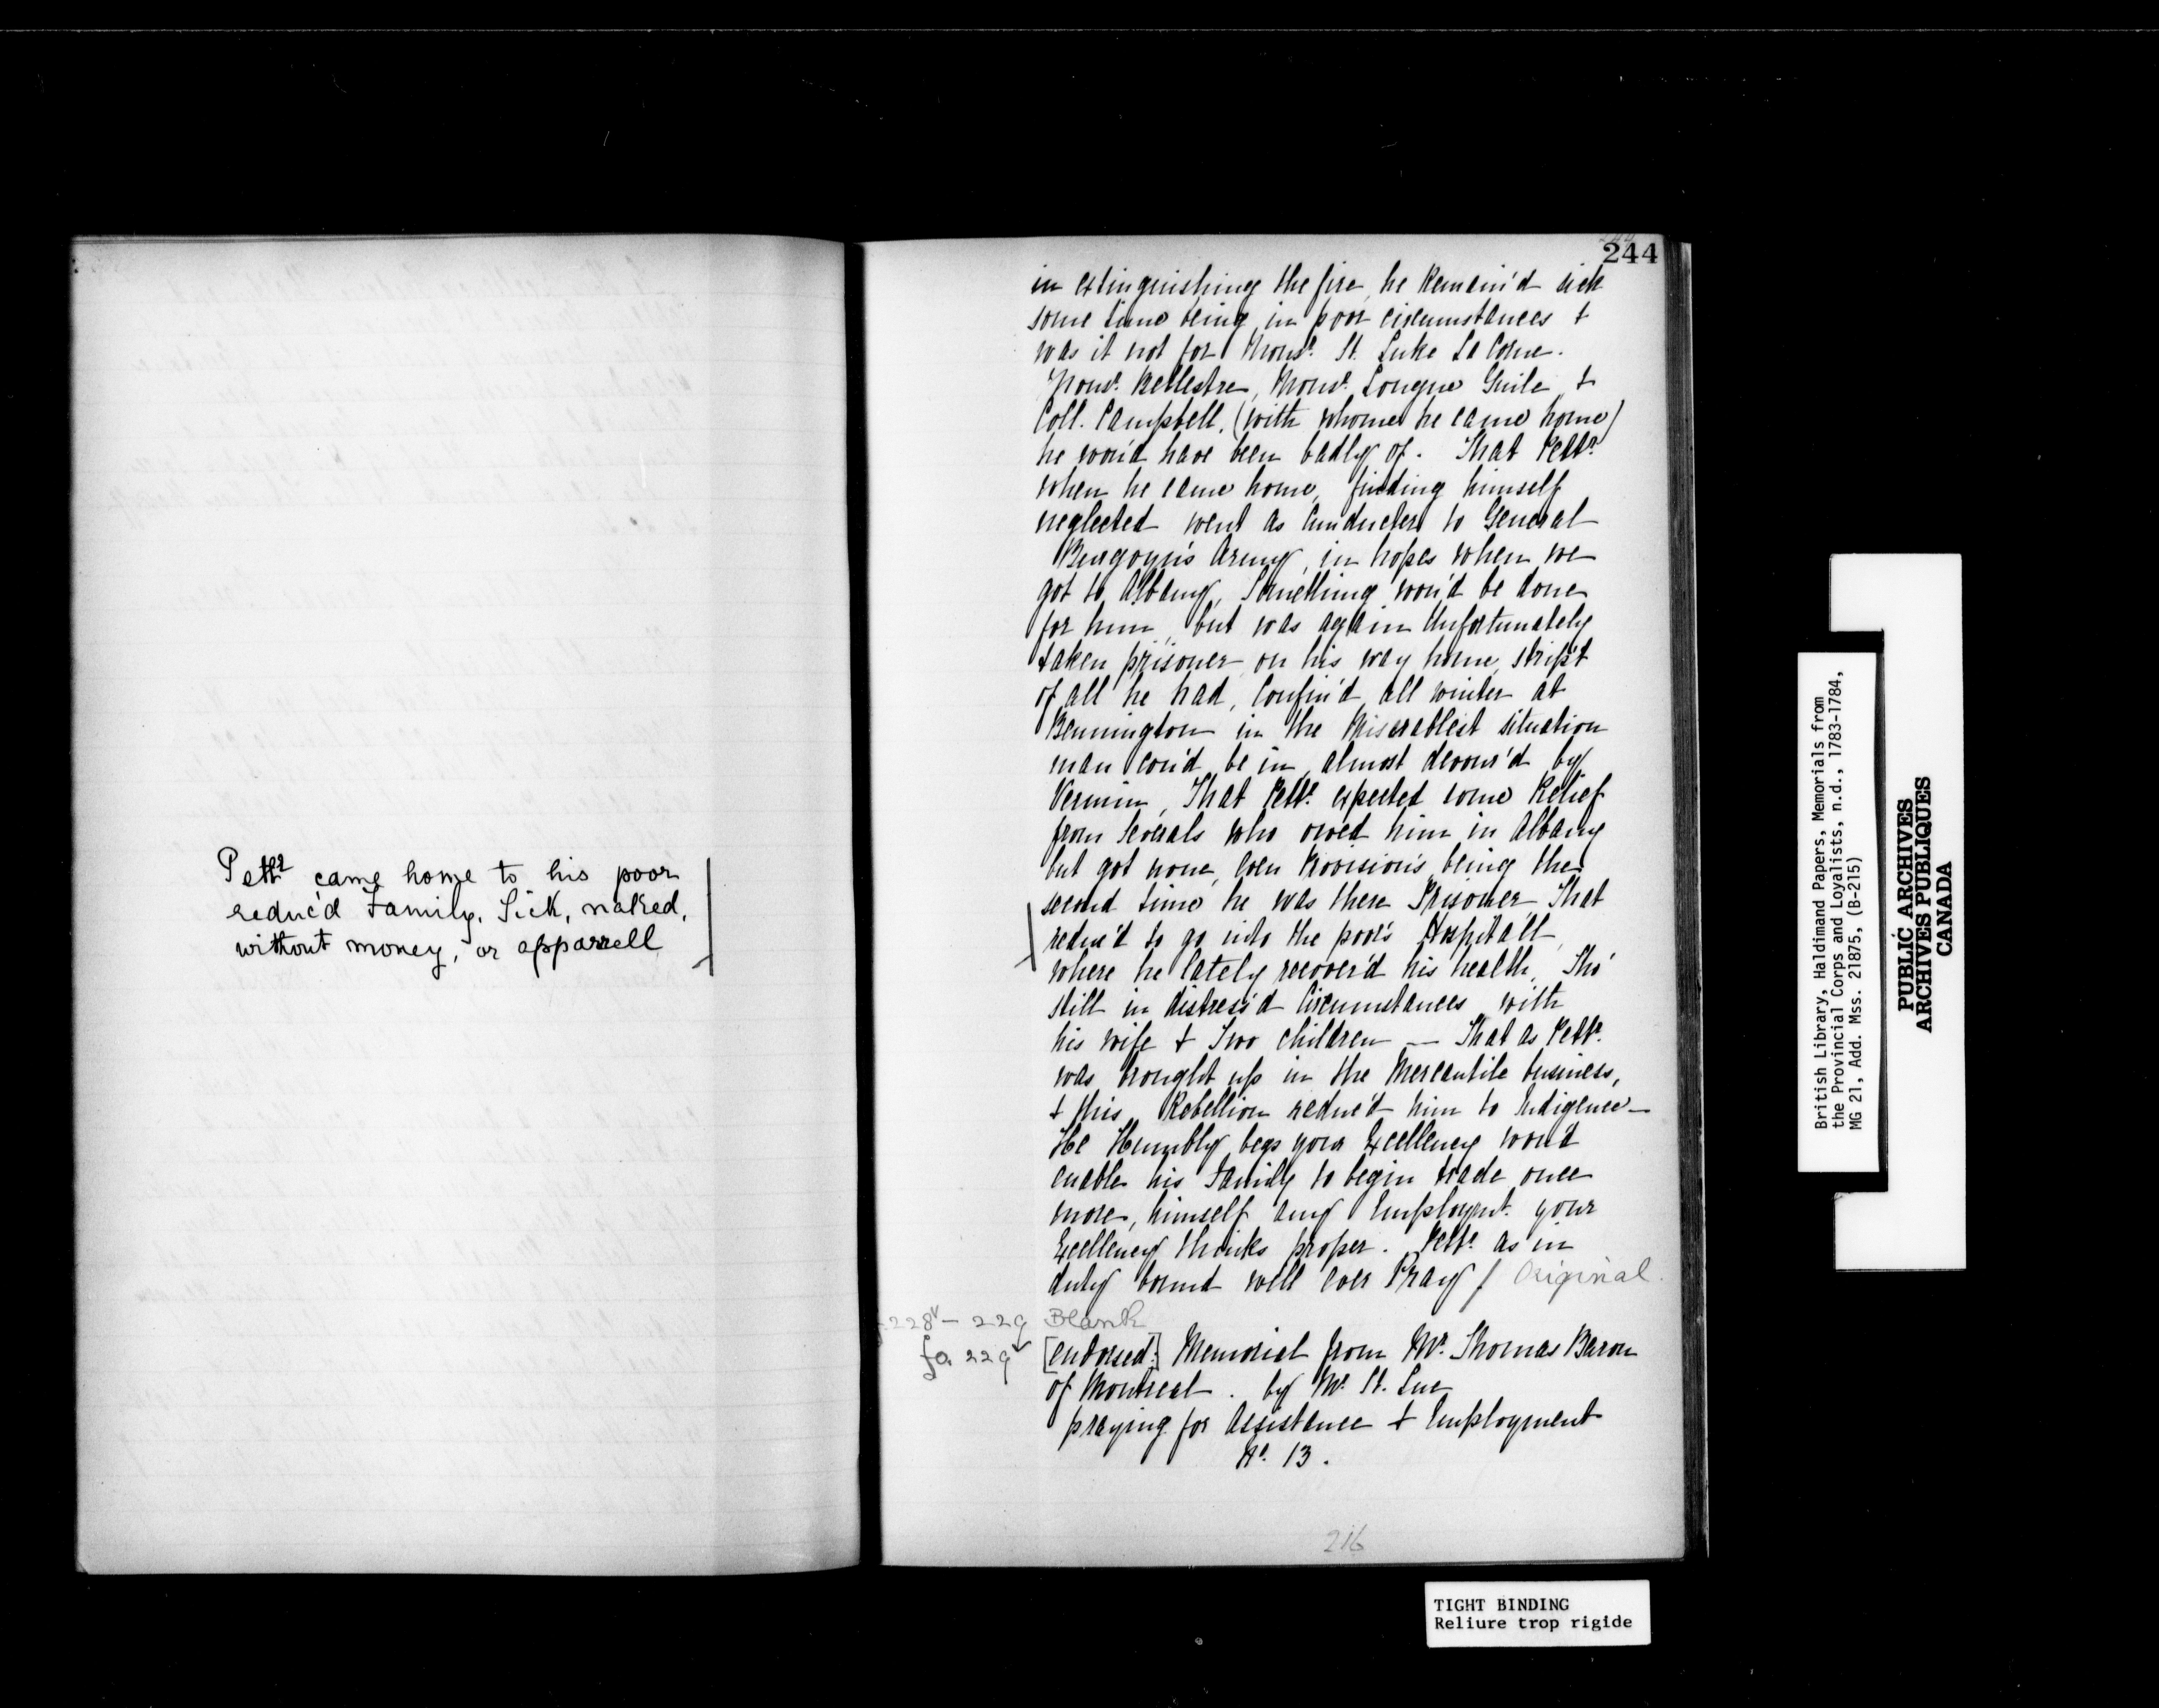 Pettr came home to his poor
reduc'd Family, Sick, naked,
without money, or apparrell
244
in extinguishing the fire, he Remain'd sick
some time being in poor circumstances &
was it not for Monsr. St. Luke La Corne.
Monsr. Bellestre, Monsr. Longue Guile, &
Coll. Campbell, (with whome he came home)
he wou'd have been badly of. That Pettr.
when he came home, finding himself
neglected went as Cunducter to General
Burgoyn's Army, in hopes when we
got to Albany, Something wou'd be done
for him, but was again Unfortunately
taken prisoner on his way home, strip't
of all he had, Confin'd all winter at
Bennington in the Miserablest situation
man cou'd be in, almost devour'd by
Vermin, That Pettr. expected some Relief
from Severals who owed him in Albany
but got none, even Provisions being the
second time he was there Prisoner That
reduc'd to go into the poor's Hospitall
where he lately recover'd his health, Tho'
still in distress'd Circumstances with
his wife & Two children — That as Pettr.
was brought up in the Mercantile business,
& this Rebellion reduc'd him to Indigence—
He Humbly begs your Excellency wou'd
enable his Family to begin trade once
more, himself any Employmt. your
Excellency thinks proper. Pettr. as in
duty bound will ever Pray / Original.
228v – 229 Blank
fo 229v [endorsed:] Memorial from Mr. Thomas Baron
of Montreal. by Mr. St. Luc
praying for Assistance & Employment
No. 13.
216
British Library, Haldimand Papers, Memorials from
the Provincial Corps and Loyalists, n.d., 1783-1784,
MG 21, Add. Mss. 21875, (B-215)
PUBLIC ARCHIVES
ARCHIVES PUBLIQUES
CANADA
TIGHT BINDING
Reliure trop rigide